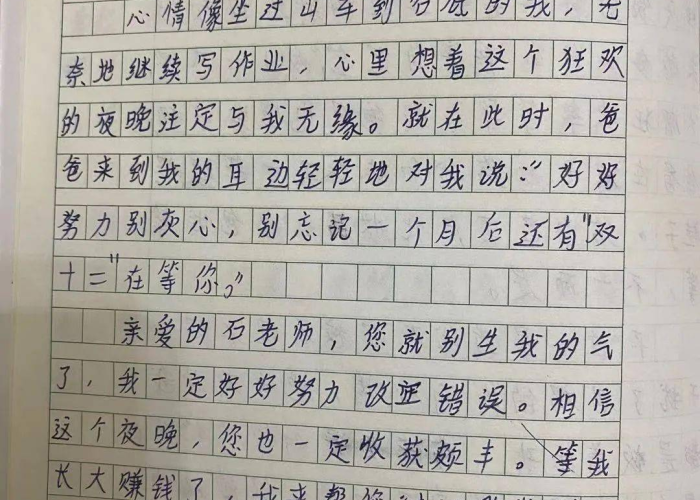 心情像坐过山车到谷底的我，无
奈地继续写作业，心里想着这个狂欢
的夜晚注定与我无缘。就在此时，爸
爸来到我的耳边轻轻地对我说："好好
努力别灰心，别忘记一个月后还有"双
十二"在等你。"
亲爱的石老师，您就别生我的气
了，我一定好好努力改正错误。相信
这个夜晚，您也一定收获颇丰。等我
长大赚钱了，我来帮您